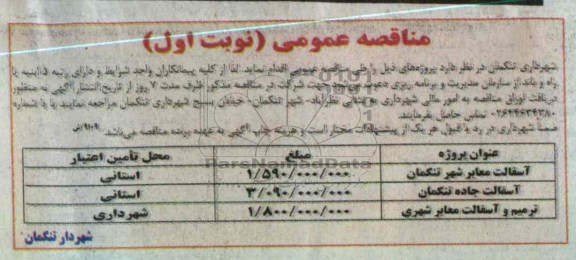 مناقصه عمومی (نوبت اول)
شهرداری تنکمان در نظر دارد پروژه‌های ذیل را طی مناقصه عمومی اقدام نماید. لذا از کلیه پیمانکاران واجد شرایط و دارای رتبه
راه و باند از سازمان مدیریت و برنامه ریزی دعوت جهت شرکت در مناقصه مذکور ظرف مدت ۷ روز از تاریخ انتشار آگهی به منظور
دریافت اوراق مناقصه به امور مالی شهرداری به نشانی نظرآباد- شهر تنکمان- خیابان بسیج شهرداری تنکمان مراجعه نمایند یا با شماره
تماس حاصل بفرمایند.
ضمناً شهرداری در رد یا قبول هر یک از پیشنهادات مختار است و هزینه چاپ آگهی به عهده برنده مناقصه می‌باشد.
ParsNamadData
عنوان پروژه مبلغ محل تأمین اعتبار
آسفالت معابر شهر تنکمان ۱/۵۹۰/۰۰۰/۰۰۰ استانی
آسفالت جاده تنکمان ۳/۰۹۰/۰۰۰/۰۰۰ استانی
ترمیم و آسفالت معابر شهری ۱/۸۰۰/۰۰۰/۰۰۰ شهرداری
شهردار تنکمان